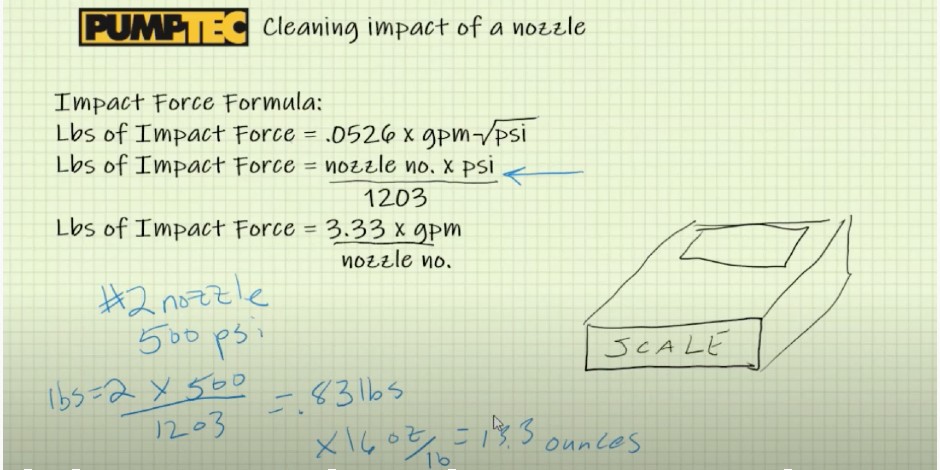 PUMPTEC Cleaning impact of a nozzle
Impact Force Formula:
Lbs of Impact Force = .0526 x gpm√psi
Lbs of Impact Force = nozzle no. x psi
1203
Lbs of Impact Force = 3.33 x gpm
nozzle no.
#2 nozzle
500 psi
SCALE
lbs = 2 x 500
1203
= .83 lbs
x 16 oz/lb = 13.3 ounces